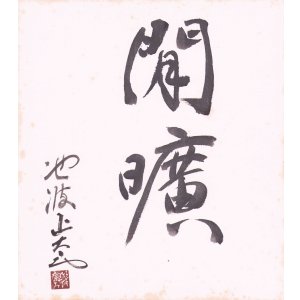 閒曠
池波正太郎